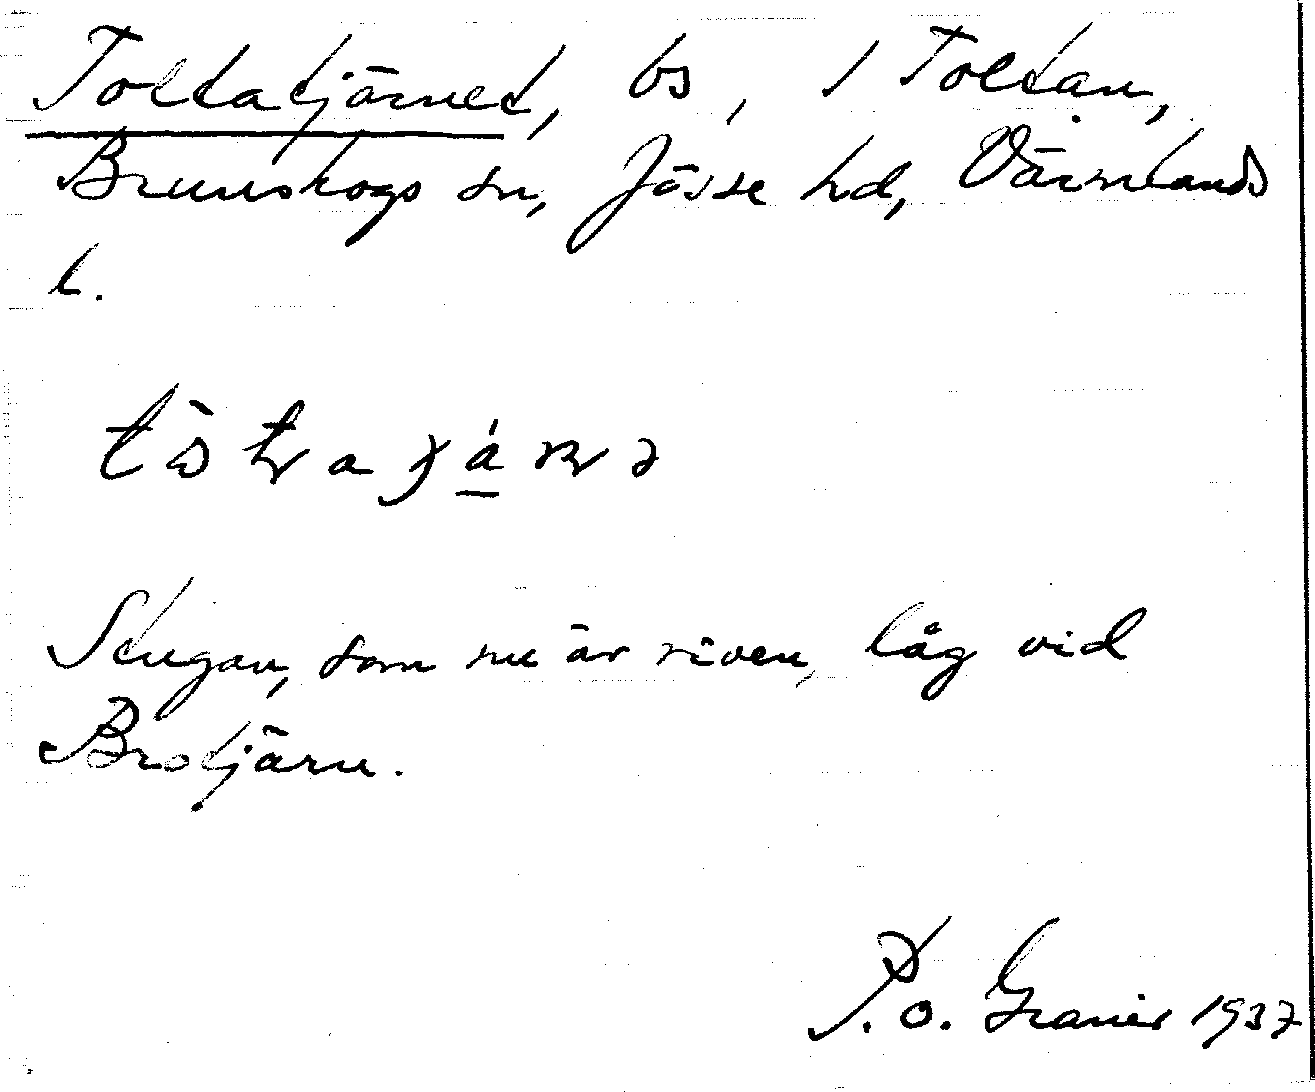 Toltatjärnet, bs, i Toltan,
Brunskogs sn, Jösse hd, Värmlands
l.
Stugan, som nu är riven, låg vid
Brotjärn.
P. O. Granér 1937